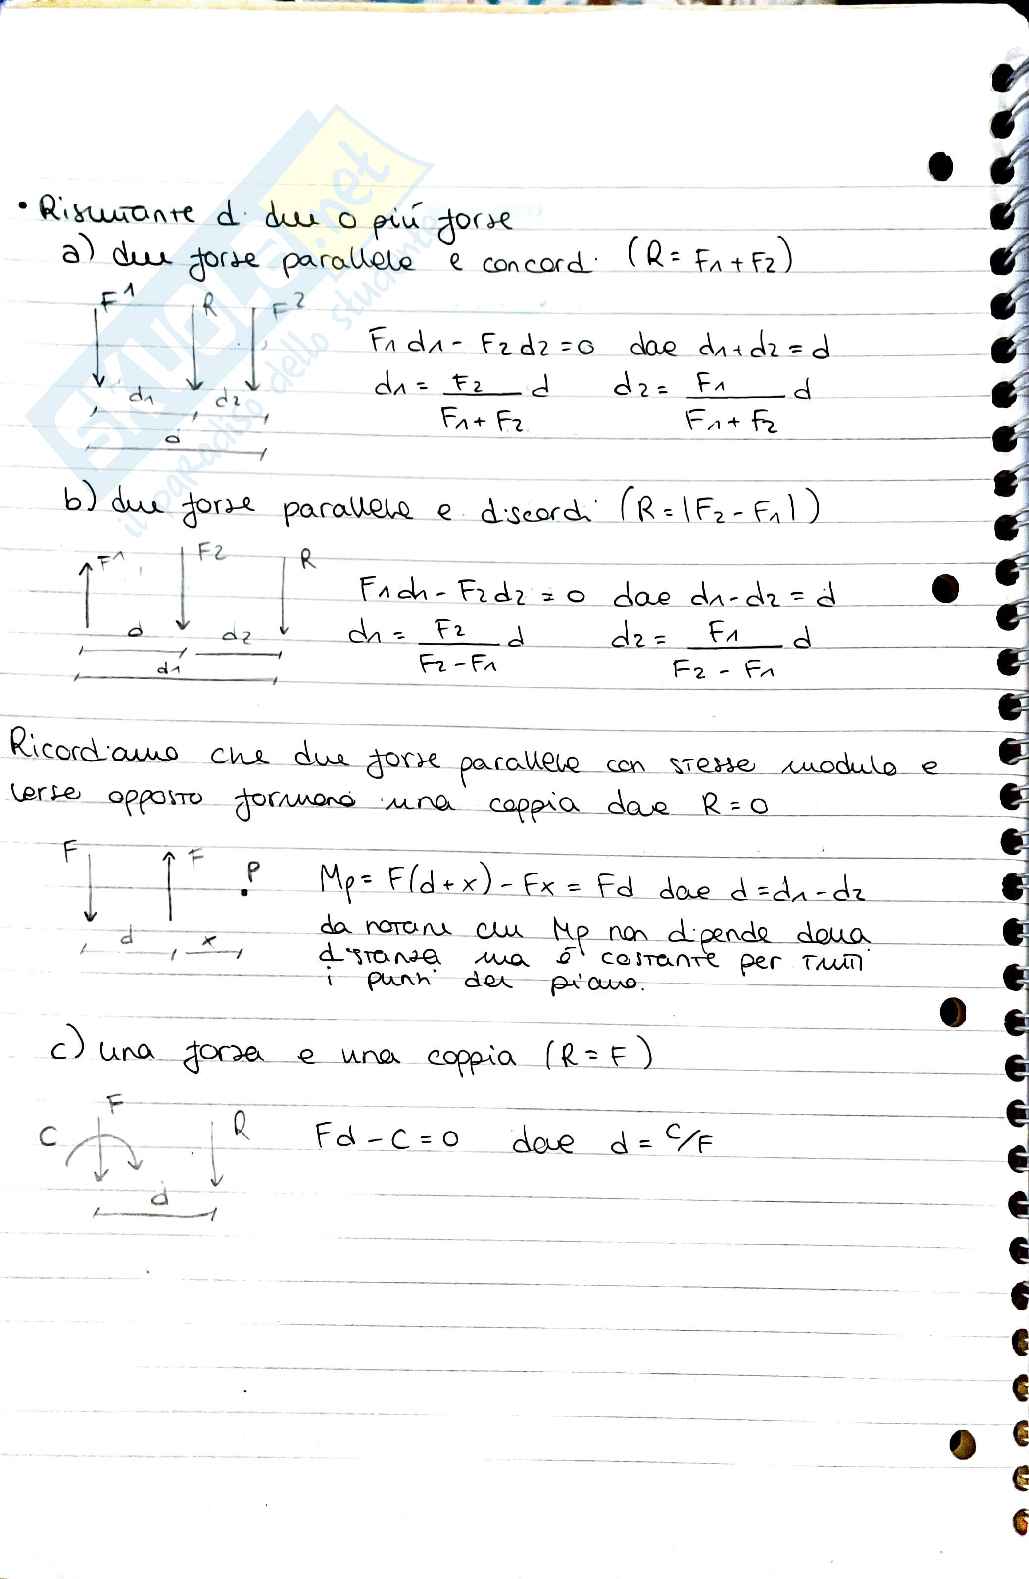 • Risultante di due o più forze
a) due forze parallele e concordi (R = F1 + F2)
F1 R F2
F1 d1 - F2 d2 = 0 dove d1 + d2 = d
d1 = F2 / (F1 + F2) d d2 = F1 / (F1 + F2) d
d1 d2
d
b) due forze parallele e discordi (R = |F2 - F1|)
F1 F2 R
F1 d1 - F2 d2 = 0 dove d1 - d2 = d
d1 = F2 / (F2 - F1) d d2 = F1 / (F2 - F1) d
d d2
d1
Ricordiamo che due forze parallele con stesse modulo e
verse opposto formano una coppia dove R = 0
F F P
d x
Mp = F(d + x) - Fx = Fd dove d = d1 - d2
da notare che Mp non dipende dalla
distanza ma è costante per tutti
i punti del piano.
c) una forza e una coppia (R = F)
F
C R
d
Fd - C = 0 dove d = C/F
SKUOLA.net
il paradiso dello studente